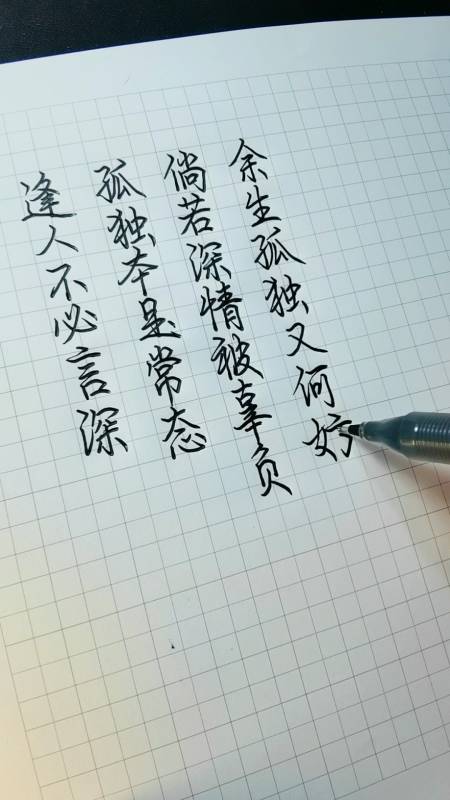 逢人不必言深
孤独本是常态
倘若深情被辜负
余生孤独又何妨